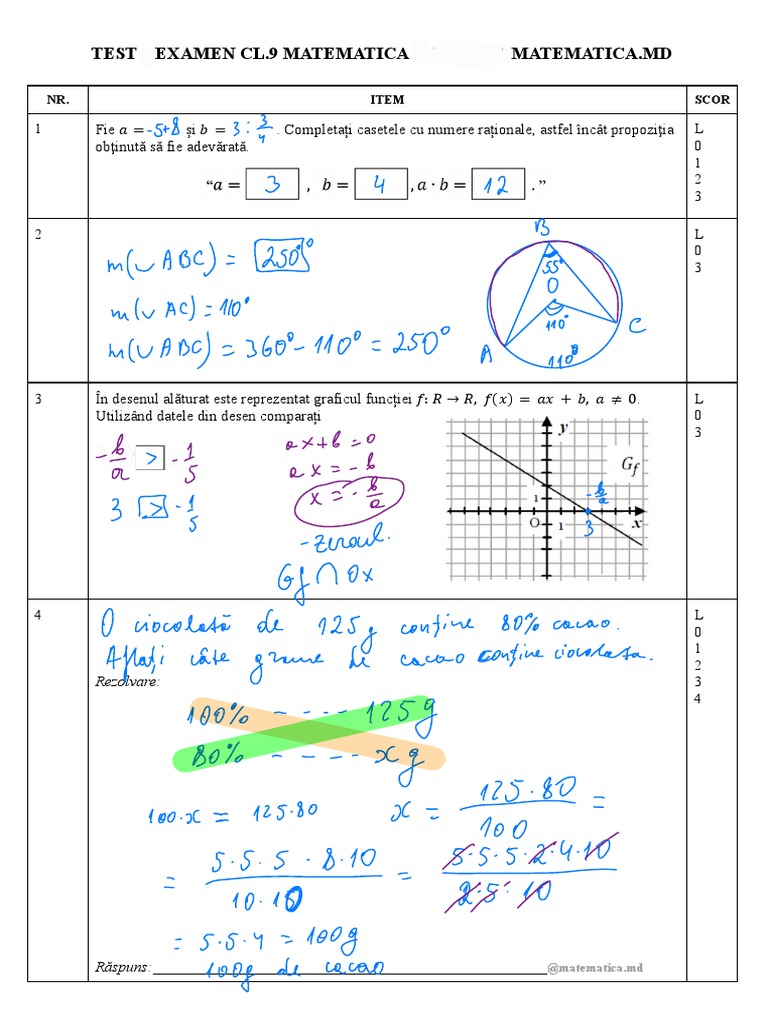 TEST EXAMEN CL.9 MATEMATICA MATEMATICA.MD
NR. ITEM SCOR
1
Fie a = -5+8 și b = 3 : 3/4 . Completați casetele cu numere raționale, astfel încât propoziția
obținută să fie adevărată.
“a = 3 , b = 4 , a · b = 12 .”
L
0
1
2
3
2
m(∪ABC) = 250°
m(∪AC) = 110°
m(∪ABC) = 360° - 110° = 250°
B
55°
O
110°
A
C
110°
L
0
3
3
În desenul alăturat este reprezentat graficul funcției f: R → R, f(x) = ax + b, a ≠ 0.
Utilizând datele din desen comparați
-b/a > -1/5
3 > -1/5
ax+b=0
ax = -b
x = -b/a
-zeroul.
Gf ∩ Ox
y
Gf
-b/a
1
O 1 3 x
L
0
3
4
O ciocolată de 125g conține 80% cacao.
Aflați câte grame de cacao conține ciocolata.
Rezolvare:
100% - - - - 125g
80% - - - - x g
100·x = 125·80
x = 125·80/100 =
= 5·5·5·8·10/10·10 = 5·5·5·2·4·10/2·5·10
= 5·5·4 = 100g
Răspuns: 100g de cacao
@matematica.md
L
0
1
2
3
4